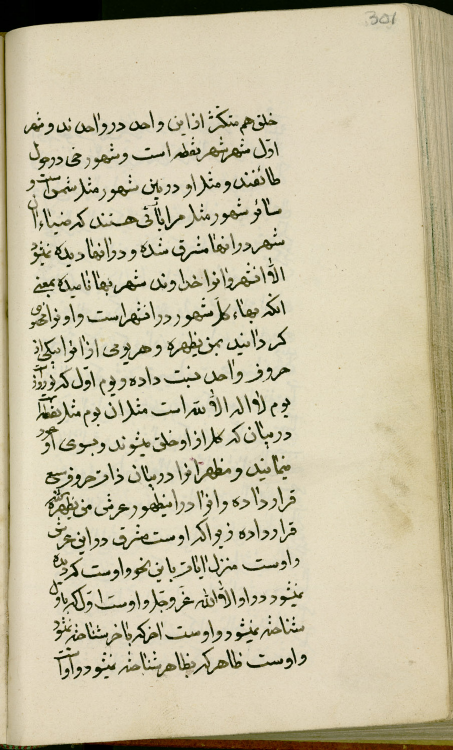 301
خلق هم متکثر از این واحد در واحد ند و شهر
اول شهر شهر نقطه است و شهور حی در حول
طائفند و مثل او در بین شهور مثل شمس است و
سائر شهور مثل مرایائی هستند که ضیاء ان
شهر در انها مشرق شده و در انها دیده نمیشود
الا انشهر و انرا خداوند شهر بهاء نامیده بمعنی
انکه بهاء کل شهور در انشهر است و او را مخصوص
کردانیده بمن یظهره و هر یومی از انرا بیکی از
حروف واحد نسبت داده و یوم اول که نوروز است
یوم لا اله الا الله است مثل ان یوم مثل نقطه است
در بیان که کل از او خلق میشوند و بسوی او عود
مینمایند و مظهر انرا در بیان ذات حروف سبع
قرار داده و انرا در اینظهور عرش من یظهره الله
قرار داده زیرا که اوست مشرق در این عرش
و اوست منزل ایات باین نحو و اوست که دیده
نمیشود در او الا الله عز و جل و اوست اول که باول
شناخته نمیشود و اوست اخر که باخر شناخته نمیشود
و اوست ظاهر که بظاهر شناخته نمیشود و اوست